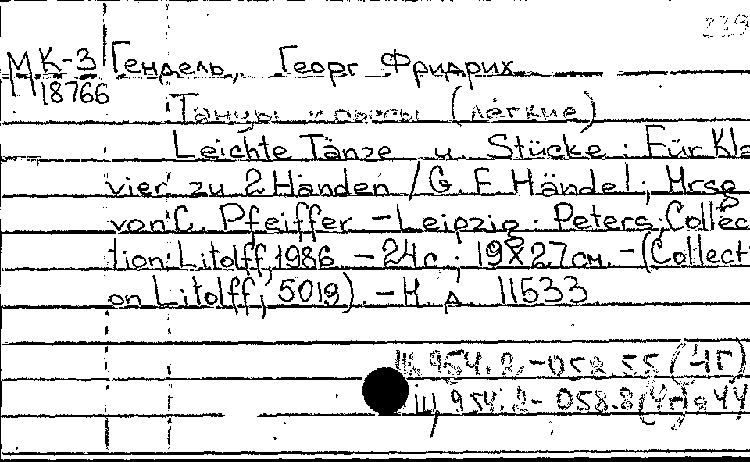 239
МК-3 Гендель, Георг Фридрих
18766
Танцы и пьесы (легкие)
Leichte Tänze u. Stücke: Für Kla
vier zu 2 Händen / G. F. Händel; Hrsg.
von C. Pfeiffer. - Leipzig: Peters; Collec
tion: Litolff, 1986. - 24 с.; 19x27 см. - (Collecti
on Litolff; 5019). - Н. д. 11533
Щ 954.2-058.55 (4Г)
Щ 954.2-058.8 (4Г)